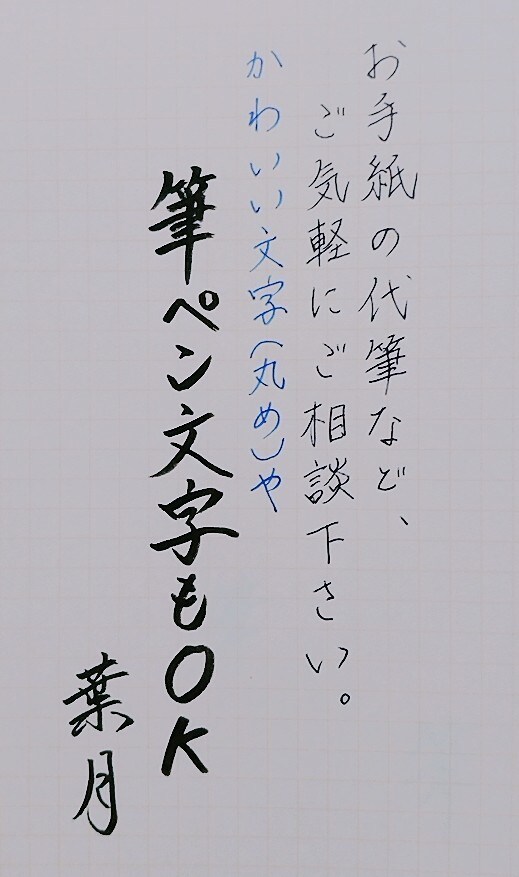 お手紙の代筆など、
ご気軽にご相談下さい。
かわいい文字(丸め)や
筆ペン文字もOK
葉月